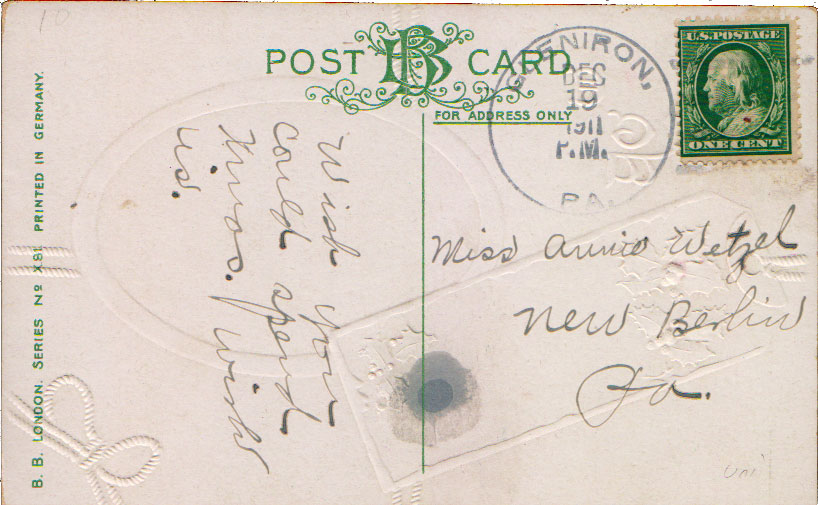 10
POST CARD
BB
FOR ADDRESS ONLY
GLENIRON,
DEC
19
1911
P.M.
PA.
U.S. POSTAGE
ONE CENT
Wish you
could spend
Xmas. with
us.
Miss Annie Wetzel
New Berlin
Pa.
B. B. LONDON. SERIES No X81. PRINTED IN GERMANY.